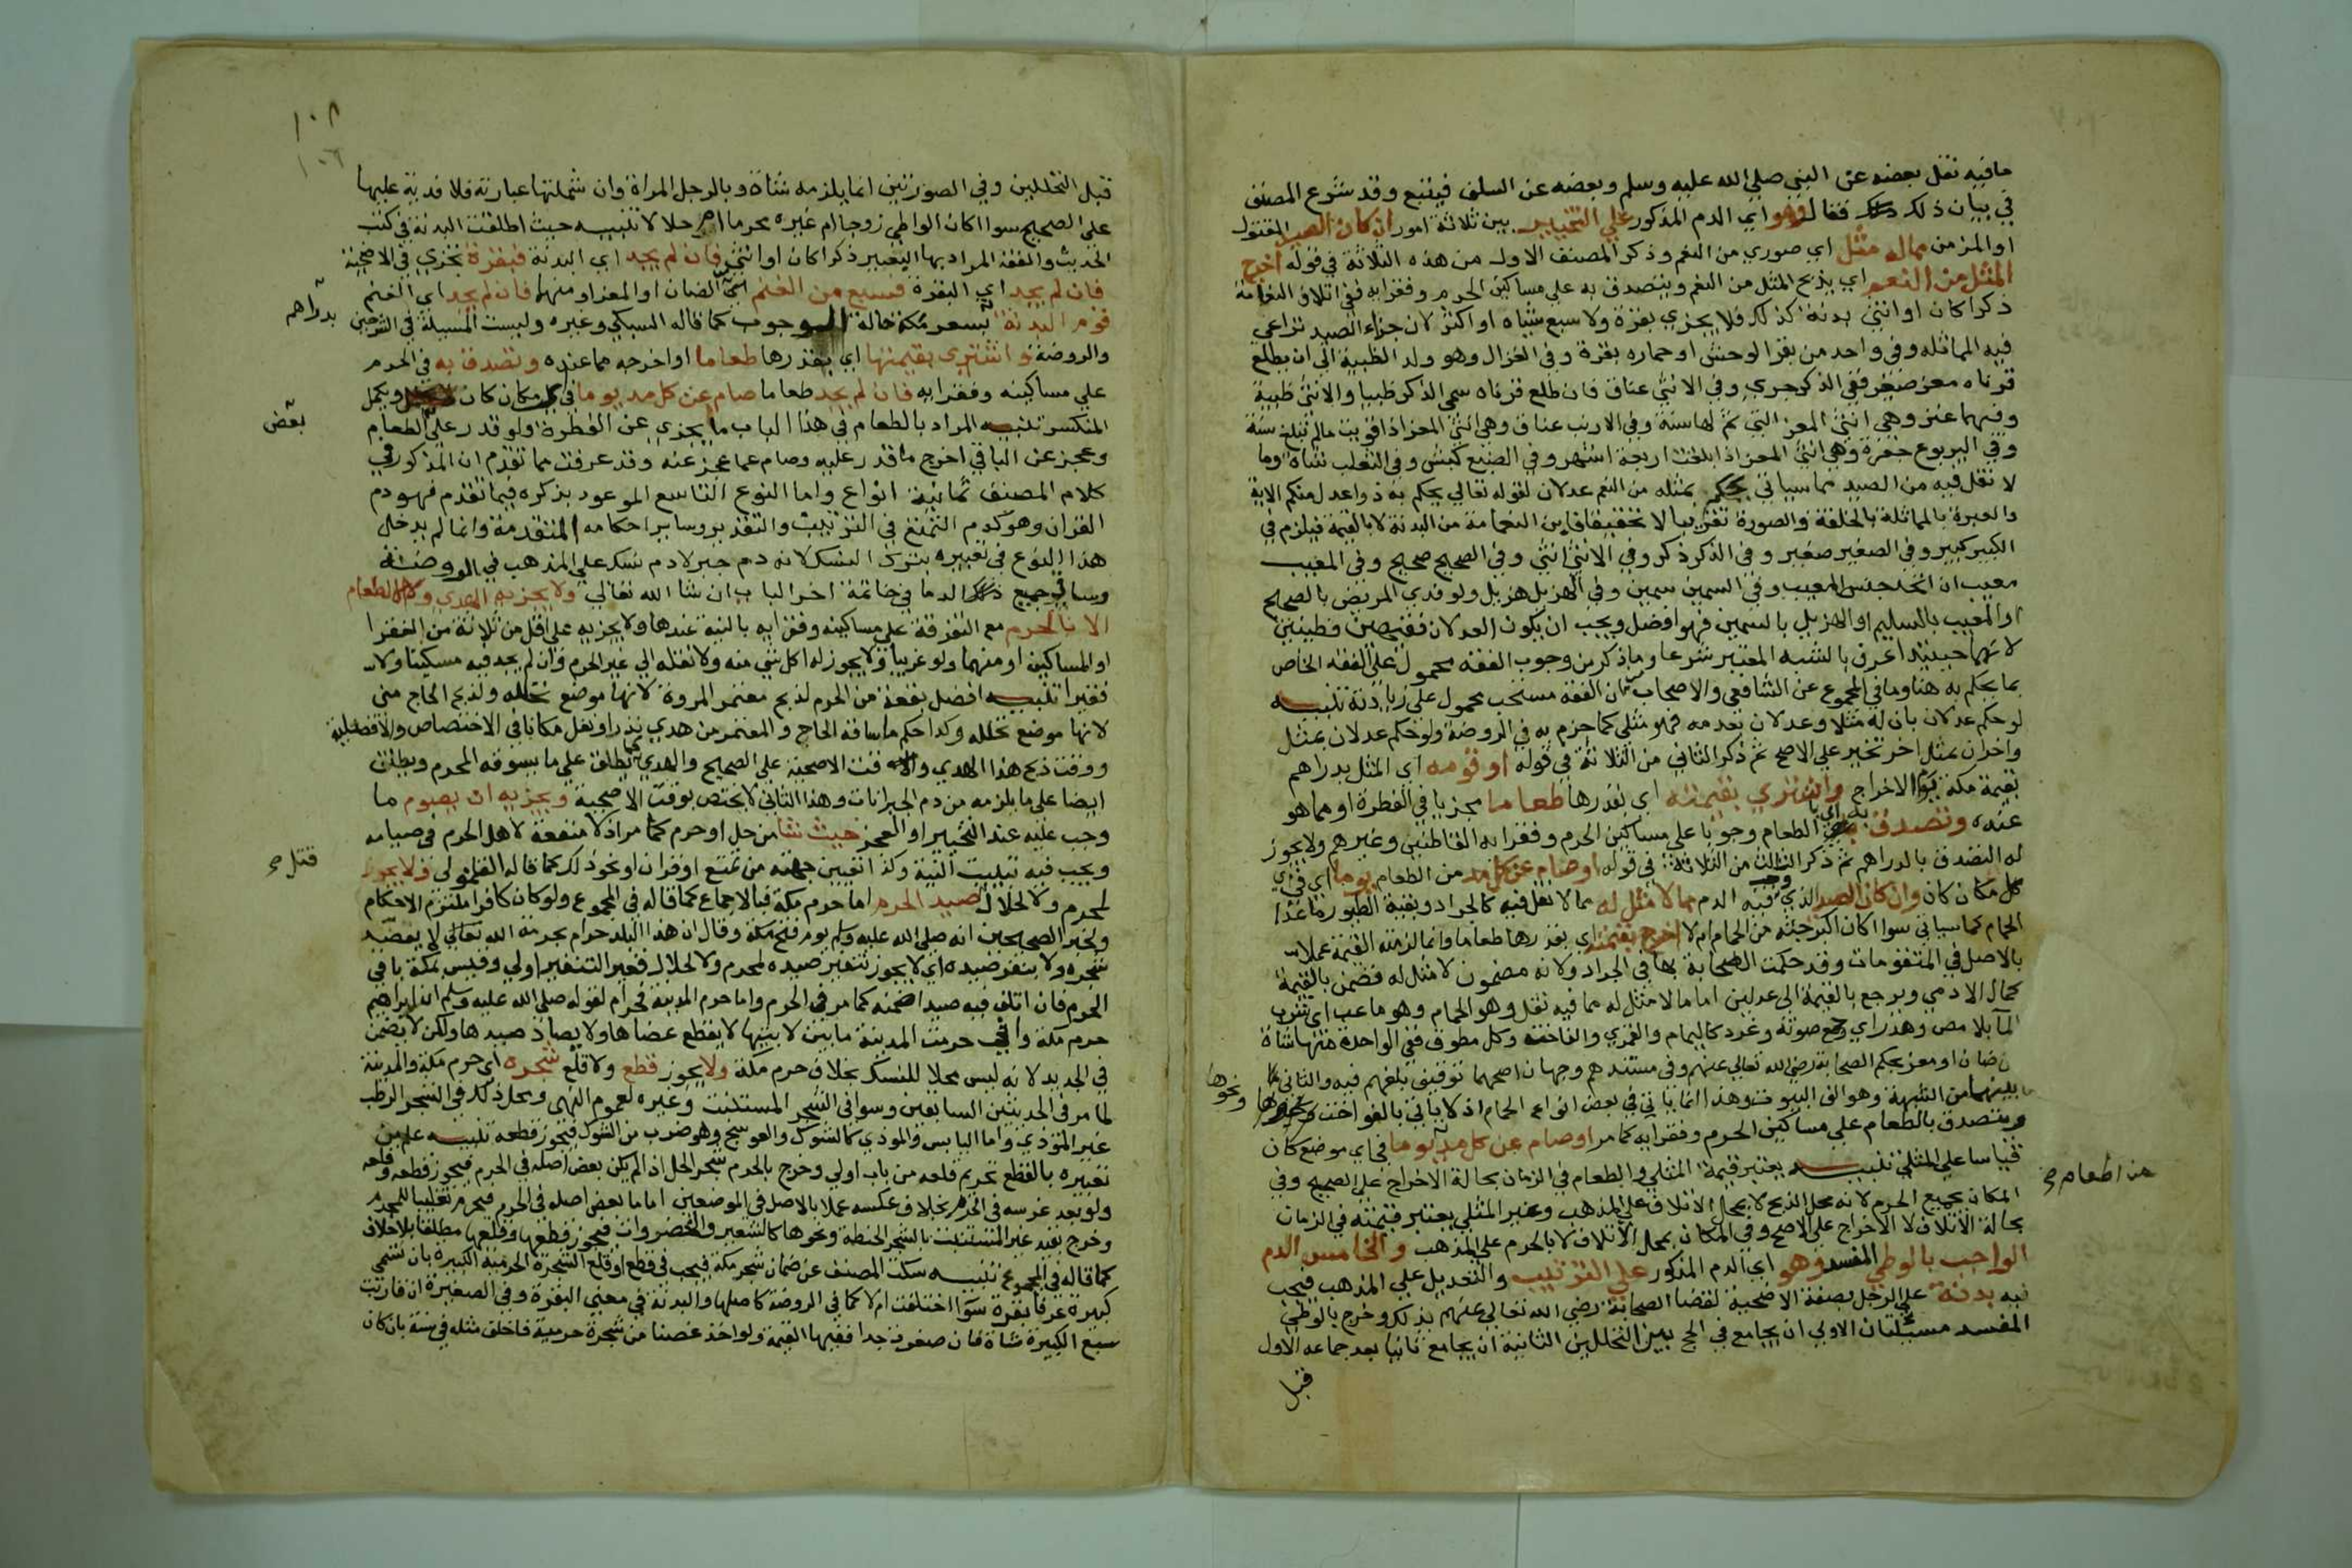 ما فيه نقل بعضه عن النبي صلي الله عليه وسلم وبعضه عن السلف فيتبع وقد شرع المصنف
في بيان ذلك فقال وهو اي الدم المذكور علي التخيير بين ثلاثة امور ان كان الصيد المقتول
او المزمن مما له مثل اي صوري من النعم وذكر المصنف الاول من هذه الثلاثة في قوله اخرج
المثل من النعم اي يذبح المثل من النعم ويتصدق به علي مساكين الحرم وفقرايه ففي اتلاف النعامة
ذكرا كان او انثي بدنة كذلك فلا يجزي بقرة ولا سبع شياه او اكثر لان جزاء الصيد تراعي
فيه المماثلة وفي واحد من بقر الوحش او حماره بقرة وفي الغزال وهو ولد الظبية الي ان يطلع
قرناه معز صغير ففي الذكر جدي وفي الانثي عناق فان طلع قرناه سمي الذكر ظبيا والانثي ظبية
وفيهما عنز وهي انثي المعز التي تم لها سنة وفي الارنب عناق وهي انثي المعز اذا قويت مالم تبلغ سنة
وفي اليربوع جفرة وهي انثي المعز اذا بلغت اربعة اشهر وفي الضبع كبش وفي الثعلب شاة وما
لا نقل فيه من الصيد مما سياتي يحكم بمثله من النعم عدلان لقوله تعالي يحكم به ذوا عدل منكم الاية
والعبرة بالمماثلة بالخلقة والصورة تقريبا لا تحقيقا فاين النعامة من البدنة لا بالقيمة فيلزم في
الكبير كبير وفي الصغير صغير وفي الذكر ذكر وفي الانثي انثي وفي الصحيح صحيح وفي المعيب
معيب ان اتحد جنس المعيب وفي السمين سمين وفي الهزيل هزيل ولو فدي المريض بالصحيح
او المعيب بالسليم او الهزيل بالسمين فهو افضل ويجب ان يكون العدلان فقيهين فطنين
لانهما حينيذ اعرف بالشبه المعتبر شرعا وما ذكر من وجوب الفقه محمول علي الفقه الخاص
بما يحكم به هنا وما في المجموع عن الشافعي والاصحاب من ان الفقه مستحب محمول علي زيادته تنبيه
لو حكم عدلان بان له مثلا وعدلان بعدمه فهو مثلي كما جزم به في الروضة ولو حكم عدلان بمثل
واخران بمثل اخر تخير علي الاصح ثم ذكر الثاني من الثلاثة في قوله او قومه اي المثل بدراهم
بقيمة مكة يوم الاخراج واشتري بقيمته اي بقدرها طعاما مجزيا في الفطرة او مما هو
عنده وتصدق به اي الطعام وجوبا علي مساكين الحرم وفقرايه القاطنين وغيرهم ولا يجوز
له التصدق بالدراهم ثم ذكر الثالث من الثلاثة في قوله او صام عن كل مد من الطعام يوما اي في
كل مكان كان وان كان الصيد الذي وجب فيه الدم مما لا مثل له مما لا نقل فيه كالجراد وبقية الطيور ما عدا
الحمام كما سياتي سوا كان اكبر جثة من الحمام ام لا اخرج بقيمته اي بقدرها طعاما وانما لزمته القيمة عملا
بالاصل في المتقومات وقد حكمت الصحابة بها في الجراد ولانه مضمون لا مثل له فضمن بالقيمة
كمال الادمي ويرجع بالقيمة الي عدلين اما ما لا مثل له مما فيه نقل وهو الحمام وهو ما عب اي شرب
الما بلا مص وهدر اي رجع صوته وغرد كاليمام والقمري والفاخته وكل مطوق ففي الواحدة منها شاة
من ضان او معز بحكم الصحابة رضي الله تعالي عنهم وفي مستندهم وجهان اصحهما توقيف بلغهم فيه والثاني ما
بينهما من الشبهة وهو الف البيوت وهذا انما ياتي في بعض انواع الحمام اذ لا ياتي بالفواخت ونحوها
ويتصدق بالطعام علي مساكين الحرم وفقرايه كما مر او صام عن كل مد يوما في اي موضع كان
قياسا علي المثلي تنبيه يعتبر قيمة المثلي والطعام في الزمان بحالة الاخراج علي الصحيح وفي
المكان بجميع الحرم لانه محل الذبح لا بمحل الاتلاف علي المذهب وغير المثلي يعتبر قيمته في الزمان
بحالة الاتلاف لا الاخراج علي الاصح وفي المكان بمحل الاتلاف لا بالحرم علي المذهب والخامس الدم
الواجب بالوطي المفسد وهو اي الدم المذكور علي الترتيب والتعديل علي المذهب فيجب
فيه بدنة علي الرجل بصفة الاضحية لقضا الصحابة رضي الله تعالي عنهم بذلك وخرج بالوطي
المفسد مسيلتان الاولي ان يجامع في الحج بين التحللين الثانية ان يجامع ثانيا بعد جماعه الاول
قبل
ونحوها
١٠٨
١٠٦
قبل التحللين وفي الصورتين انما يلزمه شاة وبالرجل المراة وان شملتها عبارته فلا فدية عليها
علي الصحيح سوا اكان الواطي زوجا ام غيره محرما ام حلالا تنبيه حيث اطلقت البدنة في كتب
الحديث والفقه المراد بها البعير ذكرا كان او انثي فان لم يجد اي البدنة فبقرة تجزي في الاضحية
فان لم يجد اي البقرة فسبع من الغنم اي من الضان او المعز او منهما فان لم يجد اي الغنم
قوم البدنة بسعر مكة حالة الوجوب كما قاله السبكي وغيره وليست المسيلة في الشرحين
بدراهم
والروضة واشتري بقيمتها اي بقدرها طعاما او اخرجه مما عنده وتصدق به في الحرم
علي مساكينه وفقرايه فان لم يجد طعاما صام عن كل مد يوما في كل مكان كان ويكمل
المنكسر تنبيه المراد بالطعام في هذا الباب ما يجزي عن الفطرة ولو قدر علي الطعام
بعض
وعجز عن الباقي اخرج ما قدر عليه وصام عما عجز عنه وقد عرفت مما تقدم ان المذكور في
كلام المصنف ثمانية انواع واما النوع التاسع الموعود بذكره فيما تقدم فهو دم
القران وهو كدم التمتع في الترتيب والتقدير وساير احكامه المتقدمة وانما لم يدخل
هذا النوع في تعبيره بترك النسك لانه دم جبر لا دم نسك علي المذهب في الروضة
وساتي جميع الدما في خاتمة اخر الباب ان شا الله تعالي ولا يجزيه الهدي ولا الاطعام
الا بالحرم مع التفرقة علي مساكينه وفقرايه بالنية عندها ولا يجزيه علي اقل من ثلاثة من الفقرا
او المساكين او منهما ولو غريبا ولا يجوز له اكل شي منه ولا نقله الي غير الحرم وان لم يجد فيه مسكينا ولا
فقيرا تنبيه افضل بقعة من الحرم لذبح معتمر المروة لانها موضع تحلله ولذبح الحاج مني
لانها موضع تحلله وكذا حكم ما ساقه الحاج والمعتمر من هدي نذر او نفل مكانا في الاختصاص والافضلية
ووقت ذبح هذا الهدي وقت الاضحية علي الصحيح والهدي كما يطلق علي ما يسوقه المحرم ويطلق
ايضا علي ما يلزمه من دم الجبرانات وهذا الثاني لا يختص بوقت الاضحية ويجزيه ان يصوم ما
وجب عليه عند التخيير او العجز حيث شا من حل او حرم كما مر اذ لا منفعة لاهل الحرم في صيامه
ويجب فيه تبييت النية وكذا تعيين جهته من تمتع او قران او نحو ذلك كما قاله القمولي ولا يجوز
قتل
لمحرم ولا لحلال صيد الحرم اما حرم مكة فبالاجماع كما قاله في المجموع ولو كان كافرا ملتزم الاحكام
ولخبر الصحيحين انه صلي الله عليه وسلم يوم فتح مكة وقال ان هذا البلد حرام بحرمة الله تعالي لا يعضد
شجره ولا ينفر صيده اي لا يجوز تنفير صيده لمحرم ولا لحلال فغير التنفير اولي وقيس بمكة باقي
الحرم فان اتلف فيه صيدا ضمنه كما مر في الحرم واما حرم المدينة فحرام لقوله صلي الله عليه وسلم ان ابراهيم
حرم مكة واني حرمت المدينة ما بين لابتيها لا يقطع عضاها ولا يصاد صيدها ولكن لا يضمن
في الجديد لانه ليس محلا للنسك بخلاف حرم مكة ولا يجوز قطع ولا قلع شجره اي حرم مكة والمدينة
لما مر في الحديثين السابقين وسوا في الشجر المستنبت وغيره لعموم النهي ومحل ذلك في الشجر الرطب
غير الموذي واما اليابس والموذي كالشوك والعوسج وهو ضرب من الشوك فيجوز قطعه تنبيه علم من
تعبيره بالقطع تحريم قلعه من باب اولي وخرج بالحرم شجر الحل اذا لم يكن بعض اصله في الحرم فيجوز قطعه وقلعه
ولو بعد غرسه في الحرم بخلاف عكسه عملا بالاصل في الموضعين اما ما بعض اصله في الحرم فيحرم تغليبا للحرم
وخرج بقيد غير المستنبت بالشجر الحنطة ونحوها كالشعير والخضروات فيجوز قطعها وقلعها مطلقا بلا خلاف
كما قاله في المجموع تنبيه سكت المصنف عن ضمان شجر مكة فيجب في قطع او قلع الشجرة الحرمية الكبيرة بان تسمي
كبيرة عرفا بقرة سوا اخلفت ام لا كما في الروضة كاصلها والبدنة في معني البقرة وفي الصغيرة ان قاربت
سبع الكبيرة شاة فان صغرت جدا ففيها القيمة ولو اخذ غصنا من شجرة حرمية فاخلف مثله في سنة بان كان